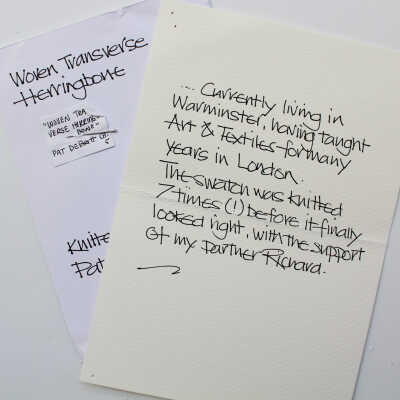 Woven Transverse
Herringbone
"WOVEN TRA
VERSE HERRING-
BONE"
PAT
Knitte
Pat
.... Currently living in
Warminster, having taught
Art & Textiles for many
years in London.
The swatch was knitted
7 times (!) before it finally
looked right, with the support
of my partner Richard.